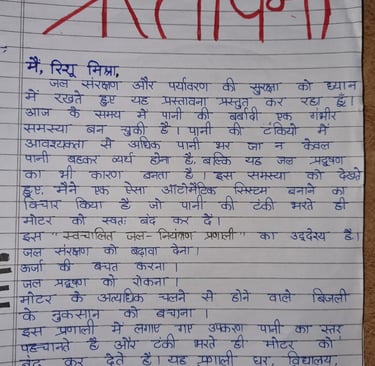 प्रस्तावना
मैं, रिशू मिश्रा,
जल संरक्षण और पर्यावरण की सुरक्षा को ध्यान
में रखते हुए यह प्रस्तावना प्रस्तुत कर रहा हूँ।
आज के समय में पानी की बर्बादी एक गंभीर
समस्या बन चुकी है। पानी की टंकियों में
आवश्यकता से अधिक पानी भर जाना न केवल
पानी बहकर व्यर्थ होना है, बल्कि यह जल प्रदूषण
का भी कारण बनता है। इस समस्या को देखते
हुए, मैंने एक ऐसा ऑटोमैटिक सिस्टम बनाने का
विचार किया है जो पानी की टंकी भरते ही
मोटर को स्वतः बंद कर दें।
इस "स्वचालित जल-नियंत्रण प्रणाली" का उद्देश्य है।
जल संरक्षण को बढ़ावा देना।
ऊर्जा की बचत करना।
जल प्रदूषण को रोकना।
मोटर के अत्यधिक चलने से होने वाले बिजली
के नुकसान को बचाना।
इस प्रणाली में लगाए गए उपकरण पानी का स्तर
पहचानते है और टंकी भरते ही मोटर को
बंद कर देते है। यह प्रणाली घर, विद्यालय,